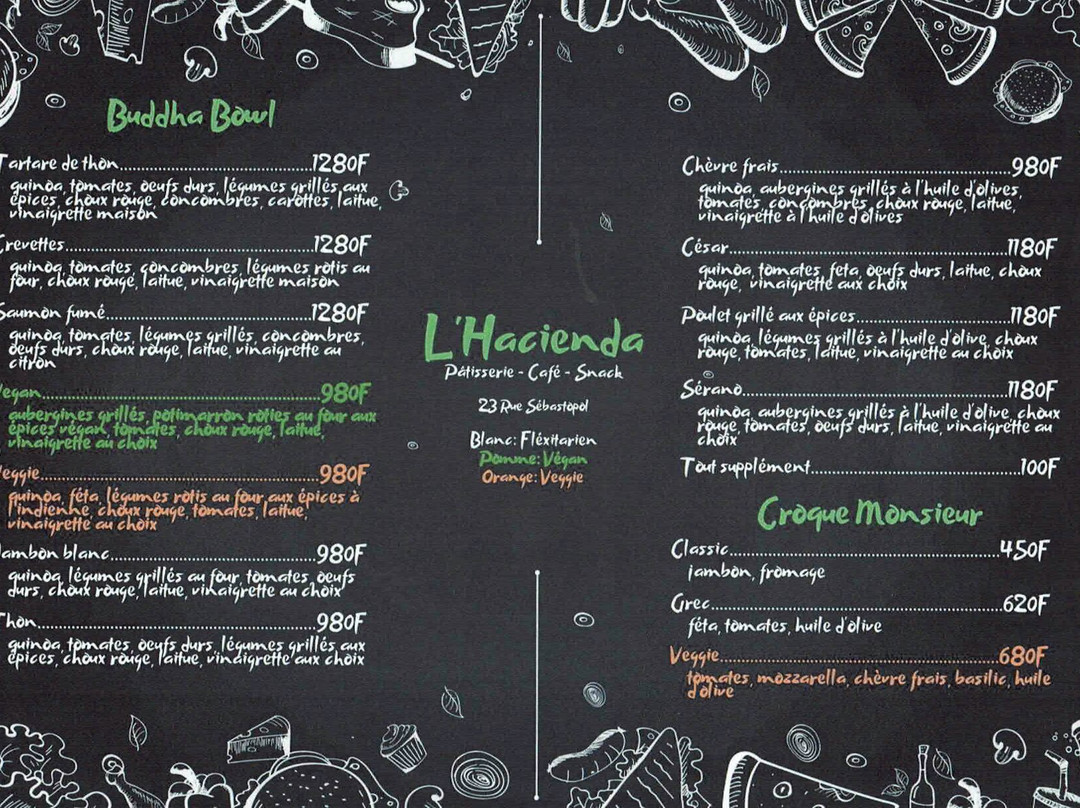 Buddha Bowl
Tartare de thon.....1280F
quinoa, tomates, oeufs durs, légumes grillés aux
épices, choux rouge, concombres, carottes, laitue,
vinaigrette maison
Crevettes.....1280F
quinoa, tomates, concombres, légumes rôtis au
four, choux rouge, laitue, vinaigrette maison
Saumon fumé.....1280F
quinoa, tomates, légumes grillés, concombres,
oeufs durs, choux rouge, laitue, vinaigrette au
citron
Vegan.....980F
aubergines grillés, potimarron rôties au four aux
épices végan, tomates, choux rouge, laitue,
vinaigrette au choix
Veggie.....980F
quinoa, féta, légumes rôtis au four aux épices à
l'indienne, choux rouge, tomates, laitue,
vinaigrette au choix
Jambon blanc.....980F
quinoa, légumes grillés au four, tomates, oeufs
durs, choux rouge, laitue, vinaigrette au choix
Thon.....980F
quinoa, tomates, oeufs durs, légumes grillés aux
épices, choux rouge, laitue, vinaigrette aux choix
L'Hacienda
Pâtisserie - Café - Snack
23 Rue Sébastopol
Blanc: Fléxitarien
Pomme: Végan
Orange: Veggie
Chèvre frais.....980F
quinoa, aubergines grillés à l'huile d'olives,
tomates, concombres, choux rouge, laitue,
vinaigrette à l'huile d'olives
César.....1180F
quinoa, tomates, feta, oeufs durs, laitue, choux
rouge, vinaigrette aux choix
Poulet grillé aux épices.....1180F
quinoa, légumes grillés à l'huile d'olive, choux
rouge, tomates, laitue, vinaigrette au choix
Sérano.....1180F
quinoa, aubergines grillés à l'huile d'olive, choux
rouge, tomates, oeufs durs, laitue, vinaigrette au
choix
Tout supplément.....100F
Croque Monsieur
Classic.....450F
jambon, fromage
Grec.....620F
féta, tomates, huile d'olive
Veggie.....680F
tomates, mozzarella, chèvre frais, basilic, huile
d'olive